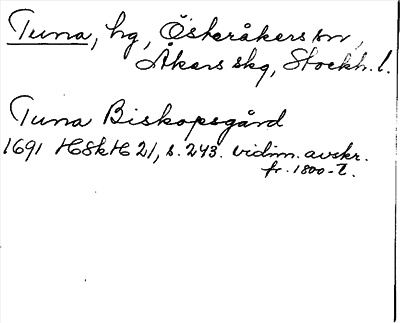 Tuna, hg, Österåkers sn,
Åkers skg, Stockh. l.
Tuna Biskopsgård
1691 HSkH 21, s. 243. vidim. avskr.
fr. 1800-t.